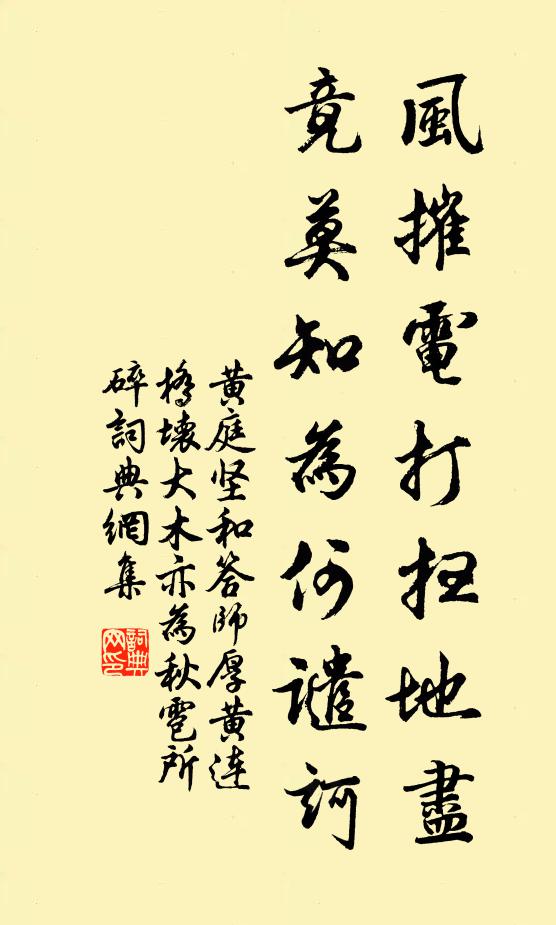 風摧電打扫地盡
竟莫知為何譴訶
黄庭坚和答師厚黄連
橋壞大木亦為秋雹所
碎詞典網集
詞典网印